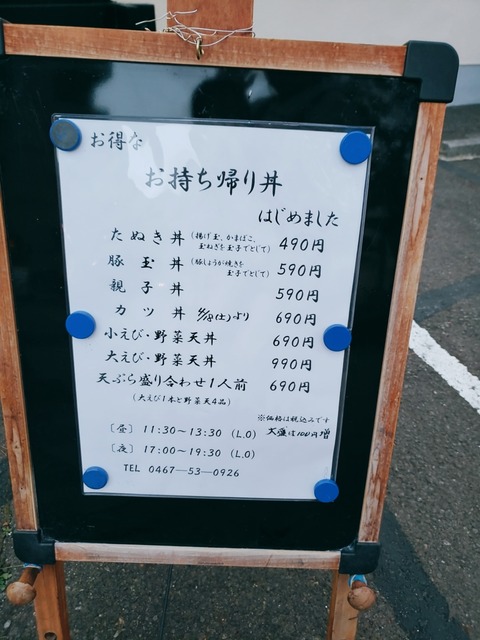 お得な
お持ち帰り丼
はじめました
たぬき丼 (揚げ玉、かまぼこ、玉ねぎを玉子でとじて) 490円
豚玉丼 (豚しょうが焼きを玉子でとじて) 590円
親子丼 590円
カツ丼 (土)より 690円
小えび・野菜天丼 690円
大えび・野菜天丼 990円
天ぷら盛り合わせ1人前 690円
(大えび1本と野菜天4品)
※価格は税込みです
大盛は100円増
〔昼〕 11:30~13:30 (L.O)
〔夜〕 17:00~19:30 (L.O)
TEL 0467―53―0926